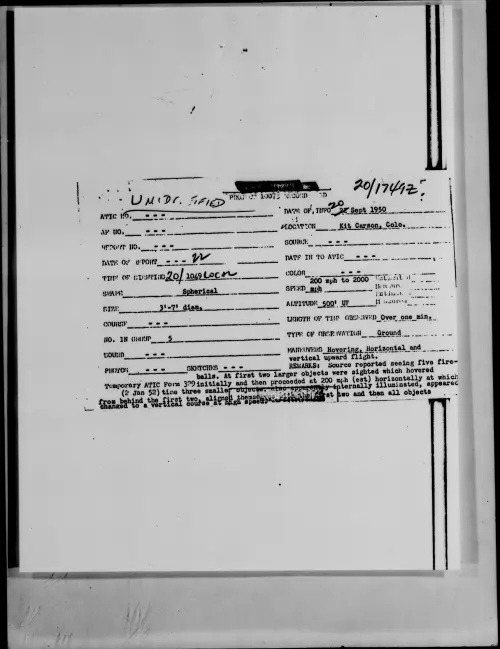 20/1749Z?
UNIDENTIFIED
DATE OF INFO 20 Sept 1950
ATIC NO. - - -
AF NO. - - -
LOCATION Kit Carson, Colo.
REPORT NO. - - -
SOURCE - - -
DATE OF REPORT - - -
DATE IN TO ATIC - - -
TIME OF SIGHTING 20/1049 LOCAL
COLOR - - -
SHAPE Spherical
SPEED 200 mph to 2000 mph
SIZE 3'-7' diam.
ALTITUDE 500' UP
COURSE - - -
LENGTH OF TIME OBSERVED Over one min.
NO. IN GROUP 5
TYPE OF OBSERVATION Ground
SOUND - - -
MANEUVERS Hovering, Horizontal and
vertical upward flight.
PHOTOS - - - SKETCHES - - -
REMARKS: Source reported seeing five fire-
balls. At first two larger objects were sighted which hovered
Temporary ATIC Form 329 initially and then proceeded at 200 mph (est) horizontally at which
(2 Jan 52) time three smaller objects, also apparently internally illuminated, appeared
from behind the first two, aligned themselves with the first two and then all objects
changed to a vertical course at high speed